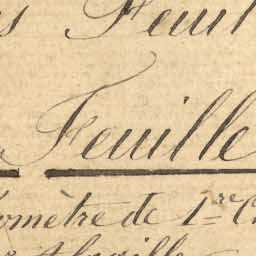 s Feuil
Feuille
omètre de 1re C